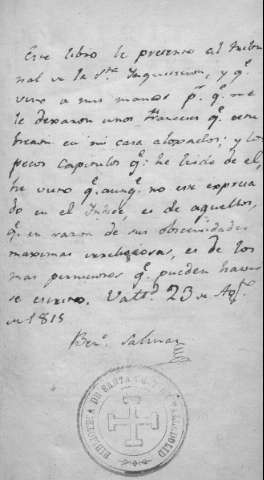 Este libro le presento al Tribu
nal de la Sta. Inquisicion, y qe.
vino a mis manos pr. qe. me
le dexaron unos franceses qe. estu
bieron en mi casa aloxados; y los
pocos Capitulos qe. he leido de el,
he visto qe. aunqe. no este expresa
do en el Indice, es de aquellos,
qe. en razon de sus obscenidades
maximas irreligiosas, es de los
mas perniciosos qe. pueden haver
se escrito. Valld. 23 de Agto.
de 1815
Beno. Salinas
BIBLIOTECA DE SANTA CRUZ VALLADOLID